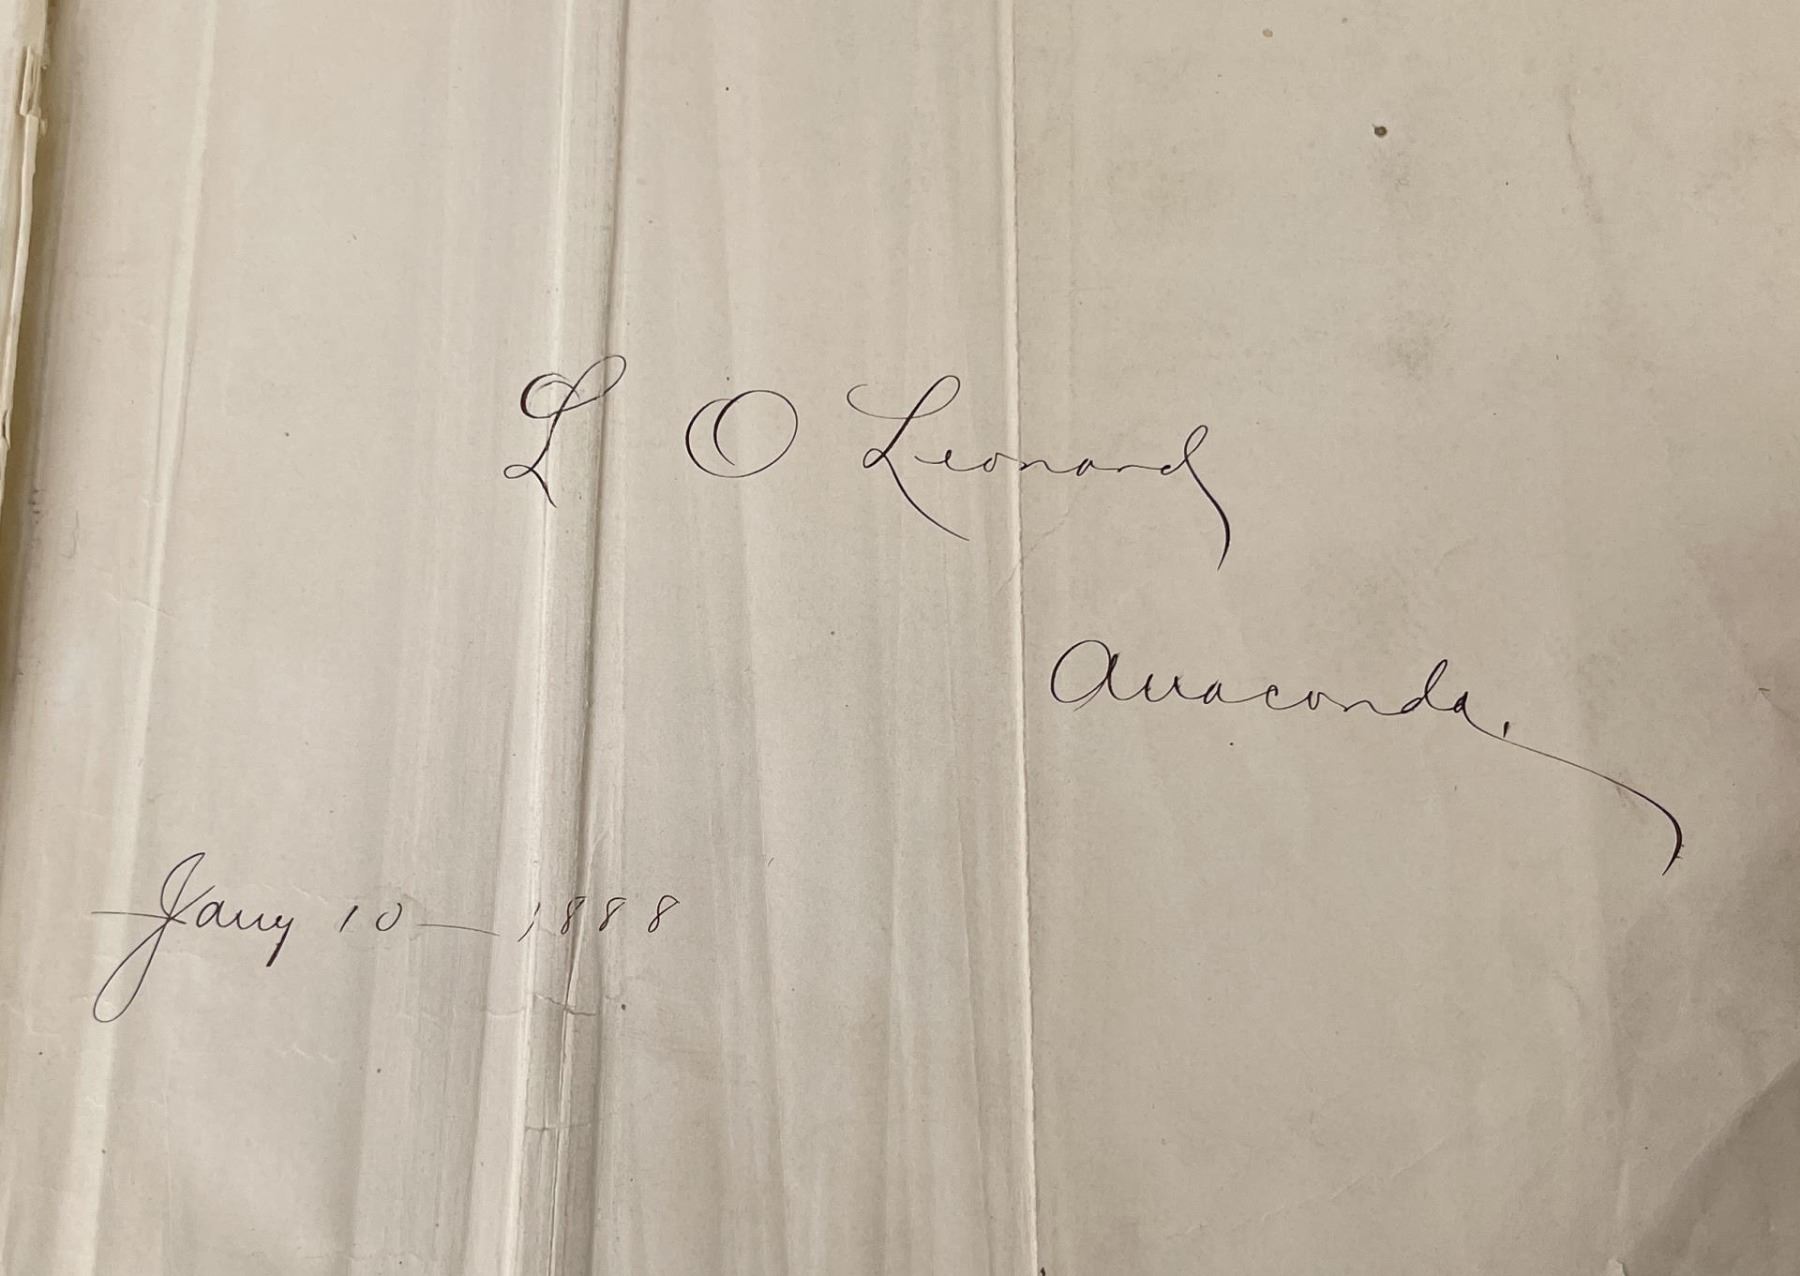 L O Leonard
Anaconda.
Jany 10 — 1888